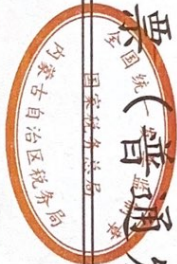 票（普通
全国统一发票监制章
国家税务总局
内蒙古自治区税务局